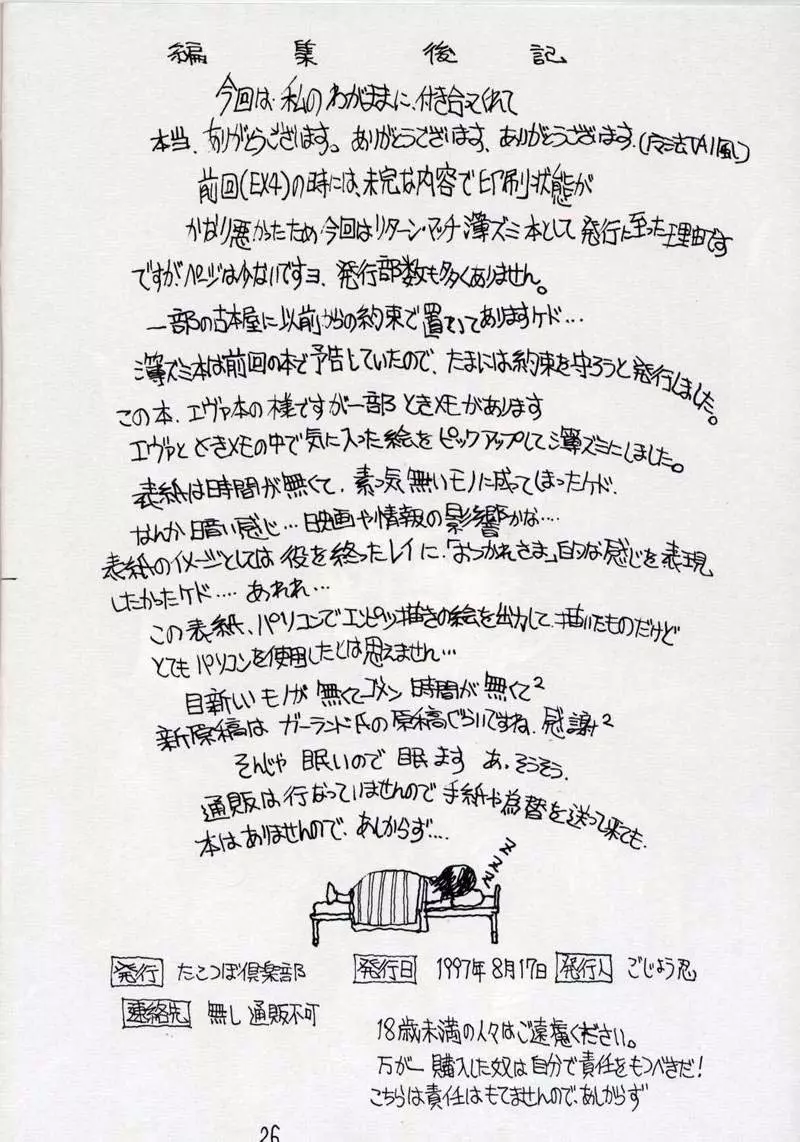 編集後記
今回は、私のわがままに、付き合ってくれて
本当、ありがとうございます。ありがとうございます、ありがとうございます。
前回(EX4)の時には、未完な内容で印刷状態が
かなり悪かったため今回はリターン・マッチ薄ズミ本として発行に至った理由です
ですが、ページは少ないですヨ、発行部数も多くありません。
一部の古本屋に以前からの約束で置いてありますケド…
薄ズミ本は前回の本で予告していたので、たまには約束を守ろうと発行しました。
この本、エヴァ本の様ですが一部ときメモがあります
エヴァとときメモの中で気に入った絵をピックアップして薄ズミにしました。
表紙は時間が無くて、素っ気無いモノに成ってしまったケド、
なんか暗い感じ…映画や情報の影響かな…
表紙のイメージとしては役を終ったレイに、「おつかれさま」的な感じを表現
したかったケド…. あれれ…
この表紙、パソコンでエンピツ描きの絵を出力して、描いたものだけど
とてもパソコンを使用したとは思えません…
目新しいモノが無くてゴメン 時間が無くて²
新原稿はガーランド氏の原稿ぐらいですね、感謝²
そんじゃ 眠いので 眠ます あ。そうそう、
通販は行なっていませんので手紙や為替を送って来ても、
本はありませんので、あしからず….
ZZZZ
発行 たこつぼ倶楽部 発行日 1997年8月17日 発行人 ごじょう忍
連絡先 無し 通販不可
18歳未満の人々はご遠慮ください。
万が一購入した奴は自分で責任をもつべきだ!
こちらは責任はもてませんので、あしからず
26